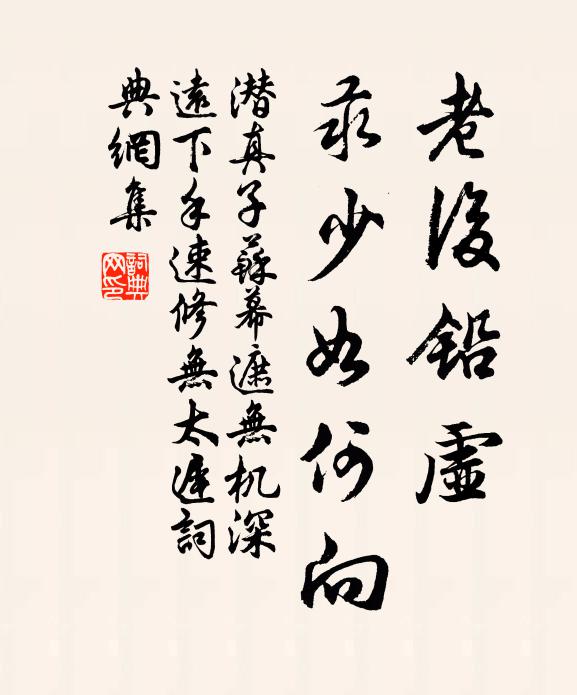 老後鉛虛
汞少如何向
潜真子蘇幕遮無机深
遠下手速修無太遲詞
典網集
詞典
网印